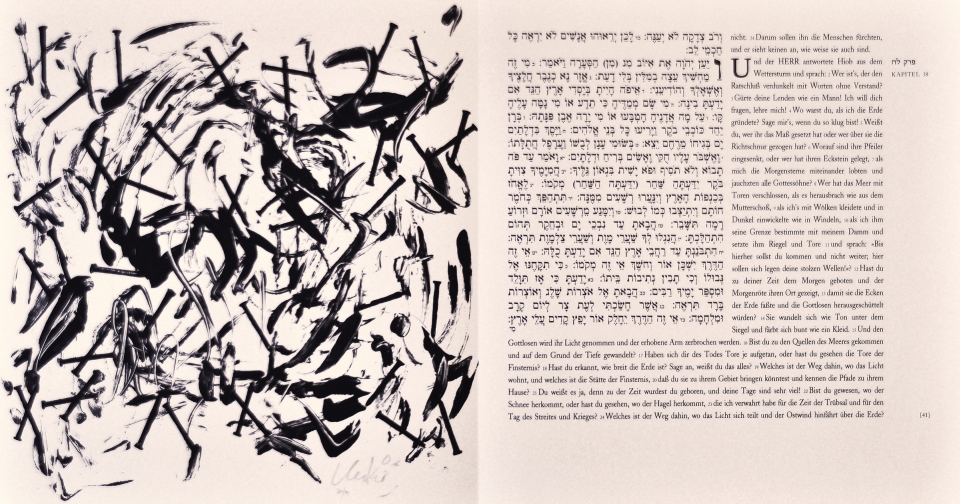 וְרֹב צְדָקָה לֹא יְעַנֶּה: 24 לָכֵן יְרֵאוּהוּ אֲנָשִׁים לֹא יִרְאֶה כָּל
חַכְמֵי לֵב:
וַיַּעַן יְהוָה אֶת אִיּוֹב מנ (מִן) הַסְּעָרָה וַיֹּאמַר: 2 מִי זֶה
מַחְשִׁיךְ עֵצָה בְמִלִּין בְּלִי דָעַת: 3 אֱזָר נָא כְגֶבֶר חֲלָצֶיךָ
וְאֶשְׁאָלְךָ וְהוֹדִיעֵנִי: 4 אֵיפֹה הָיִיתָ בְּיָסְדִי אָרֶץ הַגֵּד אִם
יָדַעְתָּ בִינָה: 5 מִי שָׂם מְמַדֶּיהָ כִּי תֵדָע אוֹ מִי נָטָה עָלֶיהָ
קָּו: 6 עַל מָה אֲדָנֶיהָ הָטְבָּעוּ אוֹ מִי יָרָה אֶבֶן פִּנָּתָהּ: 7 בְּרָן
יַחַד כּוֹכְבֵי בֹקֶר וַיָּרִיעוּ כָּל בְּנֵי אֱלֹהִים: 8 וַיָּסֶךְ בִּדְלָתַיִם
יָם בְּגִיחוֹ מֵרֶחֶם יֵצֵא: 9 בְּשׂוּמִי עָנָן לְבֻשׁוֹ וַעֲרָפֶל חֲתֻלָּתוֹ:
10 וָאֶשְׁבֹּר עָלָיו חֻקִּי וָאָשִׂים בְּרִיחַ וּדְלָתָיִם: 11 וָאֹמַר עַד פֹּה
תָבוֹא וְלֹא תֹסִיף וּפֹא יָשִׁית בִּגְאוֹן גַּלֶּיךָ: 12 הֲמִיָּמֶיךָ צִוִּיתָ
בֹּקֶר ידעתה שחר (יִדַּעְתָּה הַשַּׁחַר) מְקֹמוֹ: 13 לֶאֱחֹז
בְּכַנְפוֹת הָאָרֶץ וְיִנָּעֲרוּ רְשָׁעִים מִמֶּנָּה: 14 תִּתְהַפֵּךְ כְּחֹמֶר
חוֹתָם וְיִתְיַצְּבוּ כְּמוֹ לְבוּשׁ: 15 וְיִמָּנַע מֵרְשָׁעִים אוֹרָם וּזְרוֹעַ
רָמָה תִּשָּׁבֵר: 16 הֲבָאתָ עַד נִבְכֵי יָם וּבְחֵקֶר תְּהוֹם
הִתְהַלָּכְתָּ: 17 הֲנִגְלוּ לְךָ שַׁעֲרֵי מָוֶת וְשַׁעֲרֵי צַלְמָוֶת תִּרְאֶה:
18 הִתְבֹּנַנְתָּ עַד רַחֲבֵי אָרֶץ הַגֵּד אִם יָדַעְתָּ כֻלָּהּ: 19 אֵי זֶה
הַדֶּרֶךְ יִשְׁכָּן אוֹר וְחֹשֶׁךְ אֵי זֶה מְקֹמוֹ: 20 כִּי תִקָּחֶנּוּ אֶל
גְּבוּלוֹ וְכִי תָבִין נְתִיבוֹת בֵּיתוֹ: 21 יָדַעְתָּ כִּי אָז תִּוָּלֵד
וּמִסְפַּר יָמֶיךָ רַבִּים: 22 הֲבָאתָ אֶל אֹצְרוֹת שָׁלֶג וְאוֹצְרוֹת
בָּרָד תִּרְאֶה: 23 אֲשֶׁר חָשַׂכְתִּי לְעֶת צָר לְיוֹם קְרָב
וּמִלְחָמָה: 24 אֵי זֶה הַדֶּרֶךְ יֵחָלֶק אוֹר יָפֵץ קָדִים עֲלֵי אָרֶץ:
nicht. 24 Darum sollen ihn die Menschen fürchten,
und er sieht keinen an, wie weise sie auch sind.
Und der HERR antwortete Hiob aus dem
Wettersturm und sprach: 2 Wer ist's, der den
Ratschluß verdunkelt mit Worten ohne Verstand?
3 Gürte deine Lenden wie ein Mann! Ich will dich
fragen, lehre mich! 4 Wo warst du, als ich die Erde
gründete? Sage mir's, wenn du so klug bist! 5 Weißt
du, wer ihr das Maß gesetzt hat oder wer über sie die
Richtschnur gezogen hat? 6 Worauf sind ihre Pfeiler
eingesenkt, oder wer hat ihren Eckstein gelegt, 7 als
mich die Morgensterne miteinander lobten und
jauchzten alle Gottessöhne? 8 Wer hat das Meer mit
Toren verschlossen, als es herausbrach wie aus dem
Mutterschoß, 9 als ich's mit Wolken kleidete und in
Dunkel einwickelte wie in Windeln, 10 als ich ihm
seine Grenze bestimmte mit meinem Damm und
setzte ihm Riegel und Tore 11 und sprach: »Bis
hierher sollst du kommen und nicht weiter; hier
sollen sich legen deine stolzen Wellen!«? 12 Hast du
zu deiner Zeit dem Morgen geboten und der
Morgenröte ihren Ort gezeigt, 13 damit sie die Ecken
der Erde faßte und die Gottlosen herausgeschüttelt
würden? 14 Sie wandelt sich wie Ton unter dem
Siegel und färbt sich bunt wie ein Kleid. 15 Und den
Gottlosen wird ihr Licht genommen und der erhobene Arm zerbrochen werden. 16 Bist du zu den Quellen des Meeres gekommen
und auf dem Grund der Tiefe gewandelt? 17 Haben sich dir des Todes Tore je aufgetan, oder hast du gesehen die Tore der
Finsternis? 18 Hast du erkannt, wie breit die Erde ist? Sage an, weißt du das alles? 19 Welches ist der Weg dahin, wo das Licht
wohnt, und welches ist die Stätte der Finsternis, 20 daß du sie zu ihrem Gebiet bringen könntest und kennen die Pfade zu ihrem
Hause? 21 Du weißt es ja, denn zu der Zeit wurdest du geboren, und deine Tage sind sehr viel! 22 Bist du gewesen, wo der
Schnee herkommt, oder hast du gesehen, wo der Hagel herkommt, 23 die ich verwahrt habe für die Zeit der Trübsal und für den
Tag des Streites und Krieges? 24 Welches ist der Weg dahin, wo das Licht sich teilt und der Ostwind hinfährt über die Erde?
פרק לח
KAPITEL 38
[41]